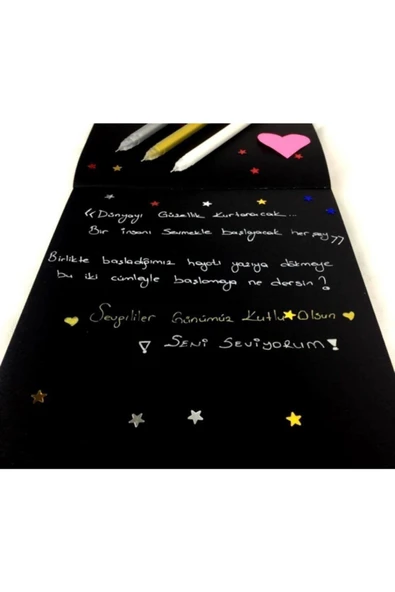 “Dünyayı Güzellik Kurtaracak...
Bir insanı Sevmekle başlayacak her şey”
Birlikte başladığımız hayatı yazıya dökmeye
bu iki cümleyle başlamaya ne dersin?
Sevgililer Günümüz Kutlu Olsun
! SENİ SEVİYORUM!